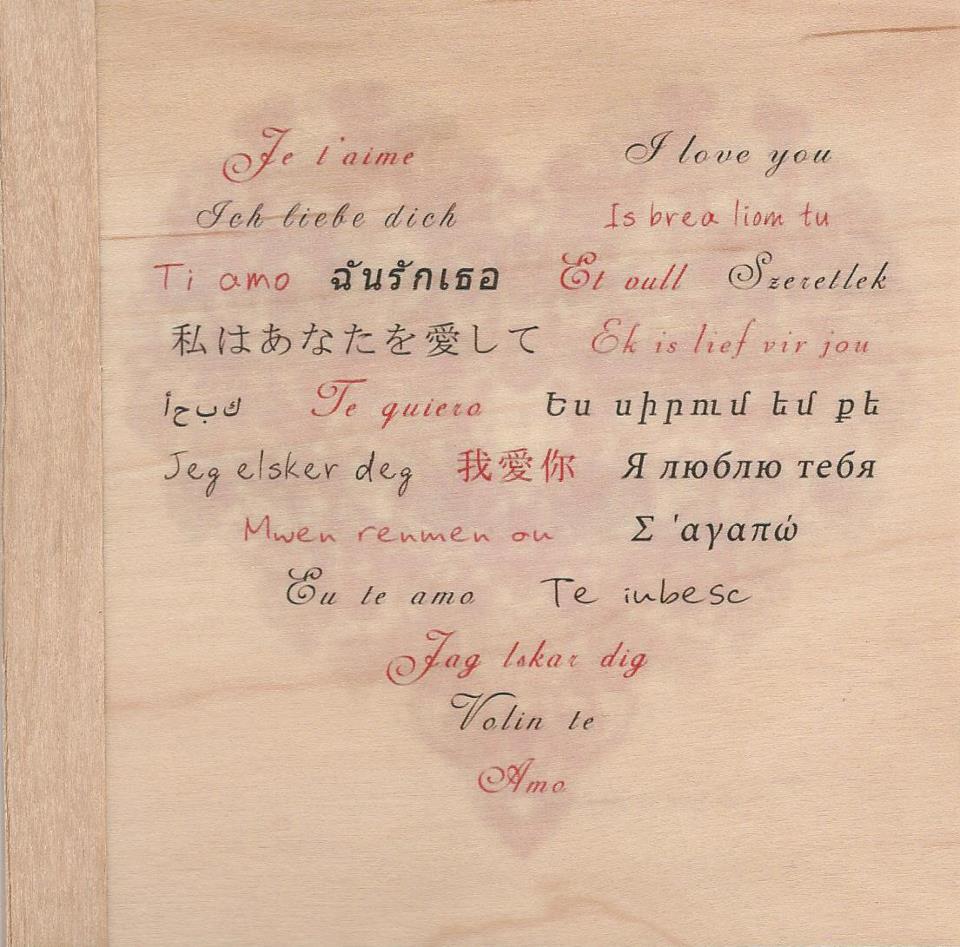 Je t'aime I love you
Ich liebe dich Is brea liom tu
Ti amo ฉันรักเธอ Et oull Szeretlek
私はあなたを愛して Ek is lief vir jou
أحبك Te quiero Ես սիրում եմ քե
Jeg elsker deg 我愛你 Я люблю тебя
Mwen renmen ou Σ 'αγαπώ
Eu te amo Te iubesc
Jag lskar dig
Volin te
Amo